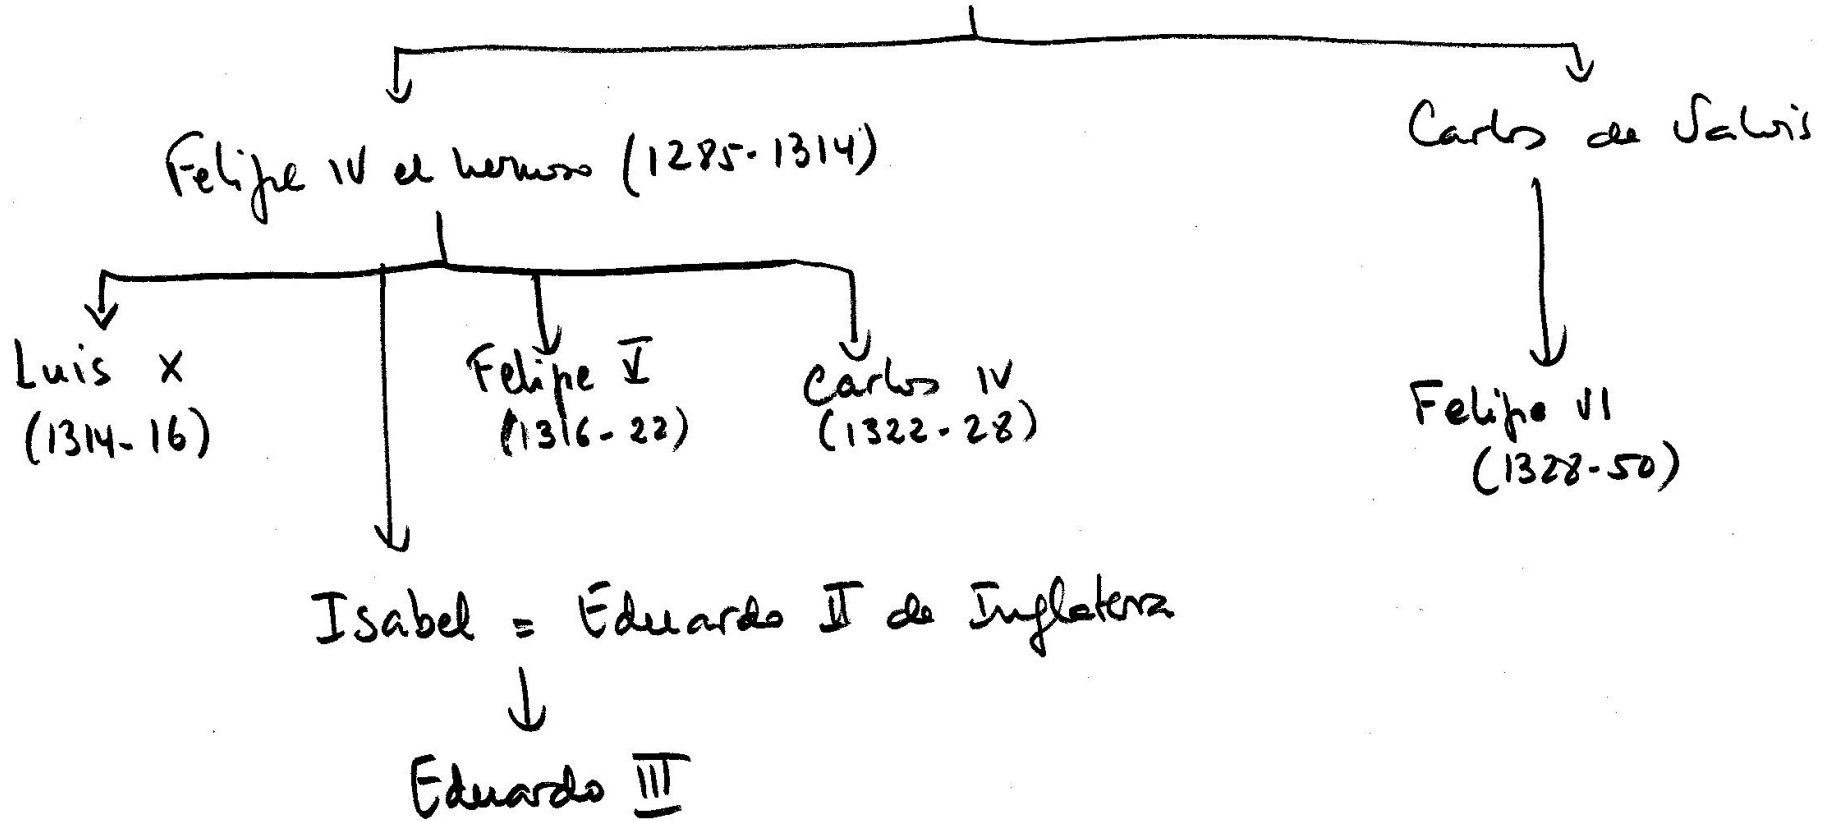 Felipe IV el hermoso (1285-1314)
Carlos de Valois
Luis X
(1314-16)
Felipe V
(1316-22)
Carlos IV
(1322-28)
Felipe VI
(1328-50)
Isabel = Eduardo II de Inglaterra
Eduardo III